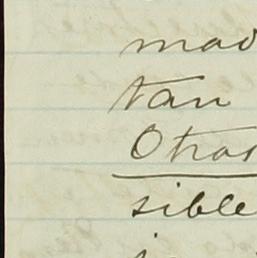 mad
tan
Otras
sible